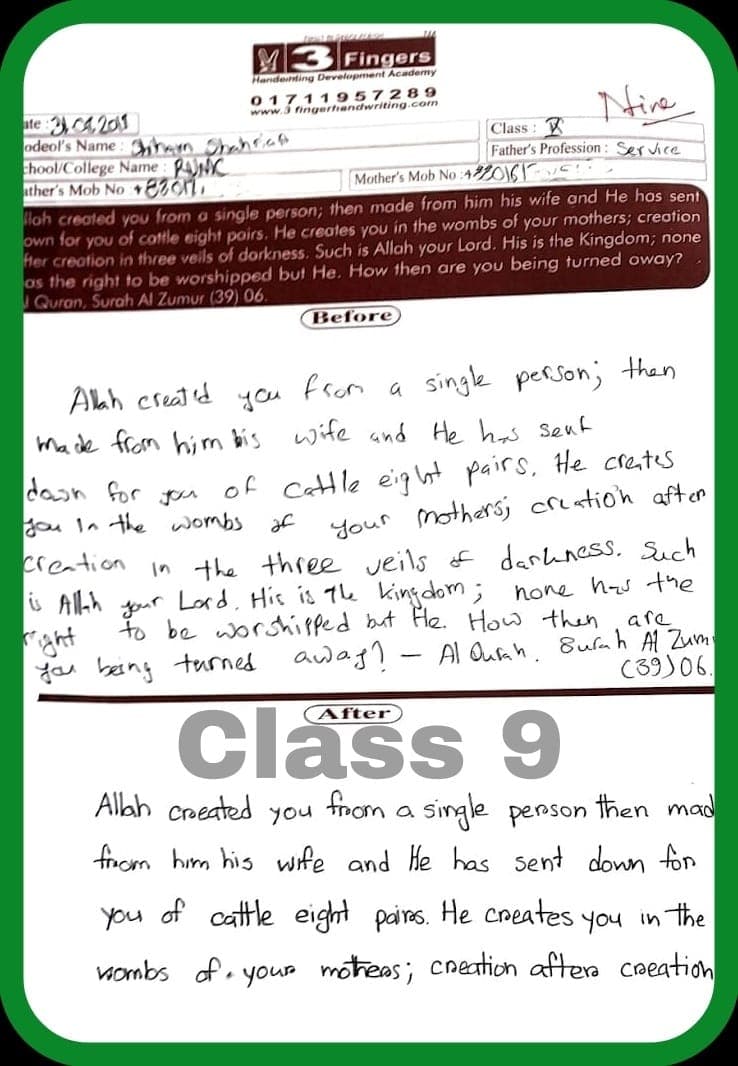 3 Fingers
Handwriting Development Academy
01711957289
www.3 fingerhandwriting.com
Nine
ate : 21.04.2018
Class :
odel's Name : Shahriar
Father's Profession : Service
chool/College Name : RUMC
ather's Mob No +88017
Mother's Mob No :
llah created you from a single person; then made from him his wife and He has sent
own for you of cattle eight pairs. He creates you in the wombs of your mothers; creation
fter creation in three veils of darkness. Such is Allah your Lord. His is the Kingdom; none
as the right to be worshipped but He. How then are you being turned away?
l Quran, Surah Al Zumur (39) 06.
Before
Allah created you from a single person; then
made from him his wife and He has sent
down for you of Cattle eight pairs. He creates
you in the wombs of your mothers; creation after
creation in the three veils of darkness. Such
is Allah your Lord. His is The kingdom; none has the
right to be worshipped but He. How then are
you being turned away? - Al Qurah. Surah Al Zum
(39)06.
After
Class 9
Allah created you from a single person then mad
from him his wife and He has sent down for
you of cattle eight pairs. He creates you in the
wombs of. your mothers; creation after creation